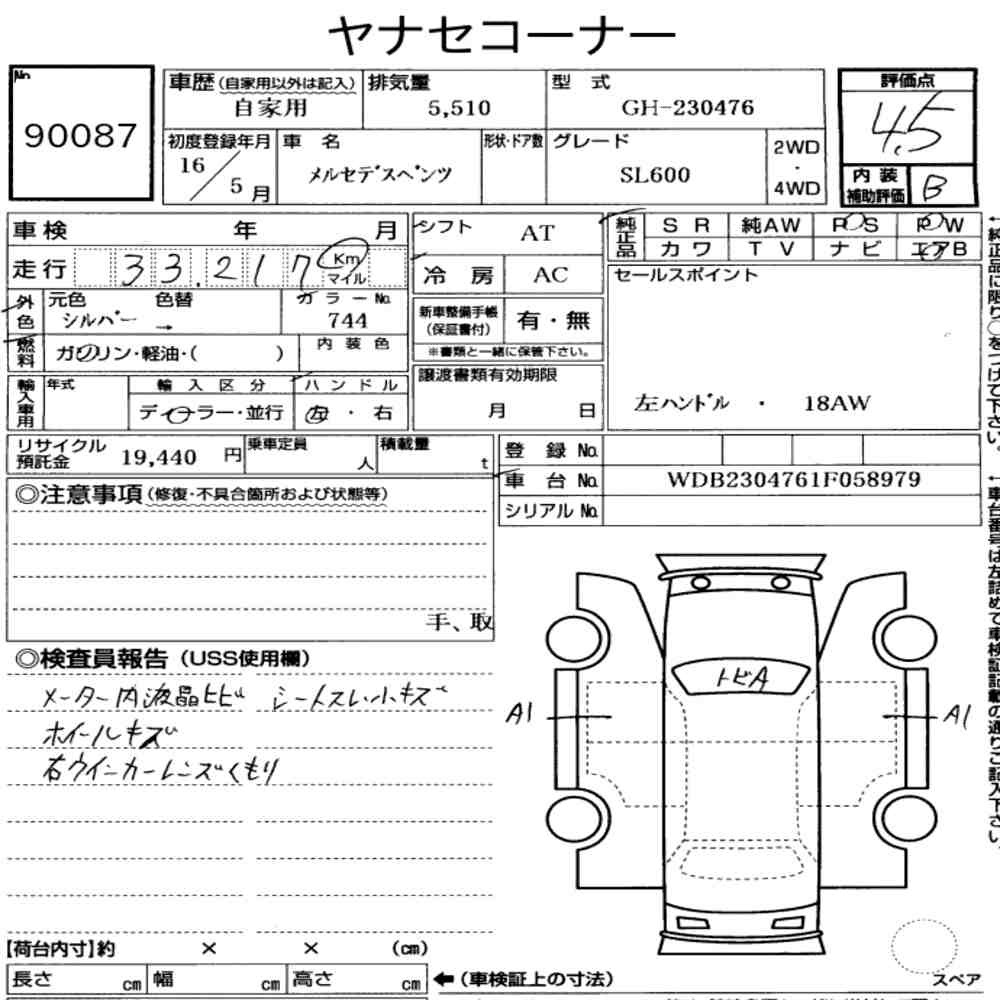 ヤナセコーナー
No. 90087
車歴(自家用以外は記入) 自家用
排気量 5,510
型 式 GH-230476
評価点 4.5
初度登録年月 16/5月
車 名 メルセデスベンツ
形状・ドア数
グレード SL600
2WD・4WD
内装補助評価 B
車検 年 月
シフト AT
純正品 SR 純AW PS PW
カワ TV ナビ エアB
走行 33,217 Km マイル
冷 房 AC
セールスポイント
外色 元色 シルバー 色替 →
カラーNo. 744
新車整備手帳(保証書付) 有・無
燃料 ガソリン・軽油・( )
内装色
※書類と一緒に保管下さい。
輸入車用 年式
輸入区分 ディーラー・並行
ハンドル 左・右
譲渡書類有効期限
月 日
左ハンドル ・ 18AW
リサイクル預託金 19,440 円
乗車定員 人
積載量 t
登 録 No.
車 台 No. WDB2304761F058979
シリアルNo.
◎注意事項(修復・不具合箇所および状態等)
手、取
◎検査員報告(USS使用欄)
メーター内液晶ヒビ シートスレ小キズ
ホイールキズ
右ウインカーレンズくもり
トビA
A1
A1
【荷台内寸】約 × × (cm)
長さ cm 幅 cm 高さ cm
←(車検証上の寸法)
スペア
←純正品に限り○をつけて下さい。
←車台番号は左詰めで車検証記載の通りご記入下さい。